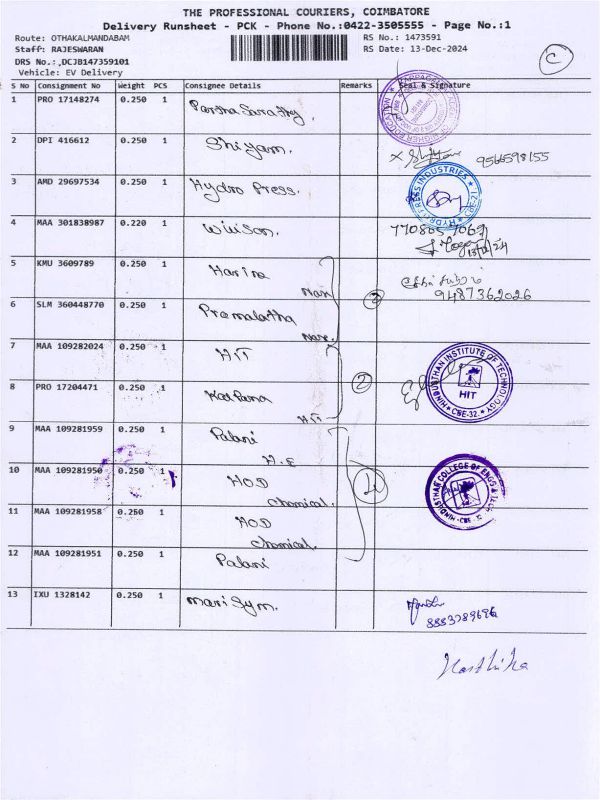 THE PROFESSIONAL COURIERS, COIMBATORE
Delivery Runsheet - PCK - Phone No.:0422-3505555 - Page No.:1
Route: OTHAKALMANDABAM
RS No.: 1473591
Staff: RAJESWARAN
RS Date: 13-Dec-2024
DRS No.:,DCJB147359101
Vehicle: EV Delivery
C
S No Consignment No Weight PCS Consignee Details Remarks Seal & Signature
1 PRO 17148274 0.250 1 Partha Sarathy.
2 DPI 416612 0.250 1 Shiyam. 9566598155
3 AMD 29697534 0.250 1 Hydro Press.
HYDROPRESS INDUSTRIES
4 MAA 301838987 0.220 1 Wilson.
13/12/24
5 KMU 3609789 0.250 1 Harina
9487362026
6 SLM 360448770 0.250 1 Premalatha
3
7 MAA 109282024 0.250 1 HIT
HINDUSTHAN INSTITUTE OF TECHNOLOGY
HIT
CBE-32.
8 PRO 17204471 0.250 1 Kalpana
HIT
2
9 MAA 109281959 0.250 1 Palani
H.E
10 MAA 109281950 0.250 1 HOD
chemical.
HINDUSTHAN COLLEGE OF ENGG & TECH
11 MAA 109281958 0.250 1 HOD
chemical.
12 MAA 109281951 0.250 1 Palani
13 IXU 1328142 0.250 1 Mari Gym.
8883789696
Karthika